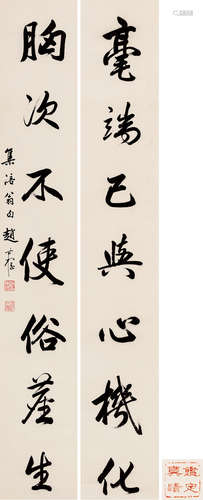 毫端已与心機化
胸次不使俗塵生
集涪翁句 趙
鑑定
真蹟